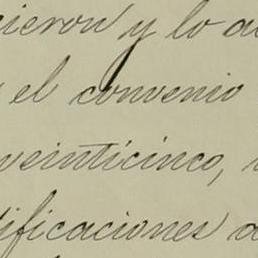 icron y lo a
el convenio
veinticinco,
tificaciones a